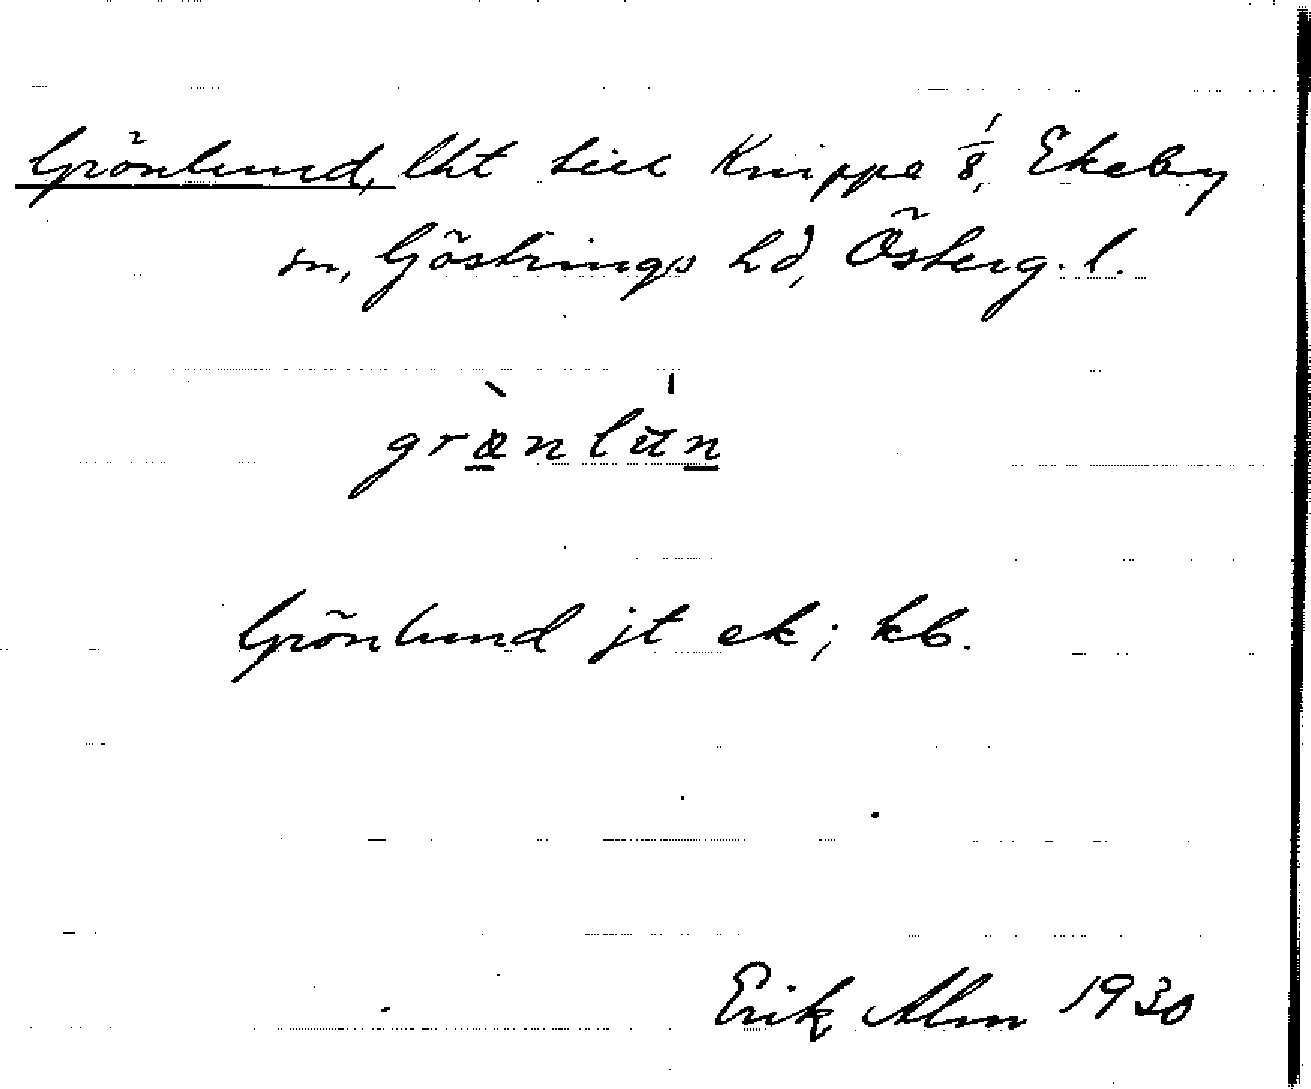 Grönlund, lht till Knippe 1/8, Ekeby
sn, Göstrings hd, Österg. l.
Grönlund jt ek; kb.
Erik Alm 1930